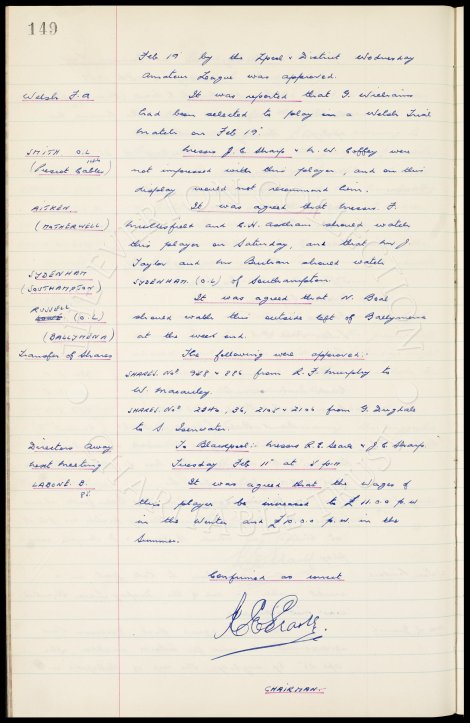 149
Feb 19 by the Lpool & District Wednesday
Amateur League was approved.
Welsh F.A It was reported that G. Williams
had been selected to play in a Welsh Trial
match on Feb 19
SMITH O.L Messrs J.C. Sharp & H.W. Coffey were
(Prescot Cables) not impressed with this player, and on this
display would not recommend him.
AITKEN. It was agreed that Messrs F.
(MOTHERWELL) Micklesfield and C.H. Askham should watch
this player on Saturday, and that Mr J
Taylor and Mr Buchan should watch
SYDENHAM SYDENHAM (O.L) of Southampton.
(SOUTHAMPTON) It was agreed that N. Boal
RUSSELL
(O.L) should watch this outside left of Ballymena
(BALLYMENA) at the week end.
Transfer of Shares The following were approved:-
SHARES. Nos 928 & 886 from R.F. Murphy to
W. Macauley.
SHARES. Nos 36, 2105 & 2106 from G. Dughals
to S. Isenwater.
Directors Away To Blackpool:- Messrs R.E. Searle & J.C. Sharp.
Next Meeting Tuesday Feb 11th at 5 p.m
LABONE. B. It was agreed that the Wages of
this player be increased to £11.0.0 p.w
in the Winter and £10.0.0 p.w. in the
Summer.
Confirmed as correct
CHAIRMAN.-